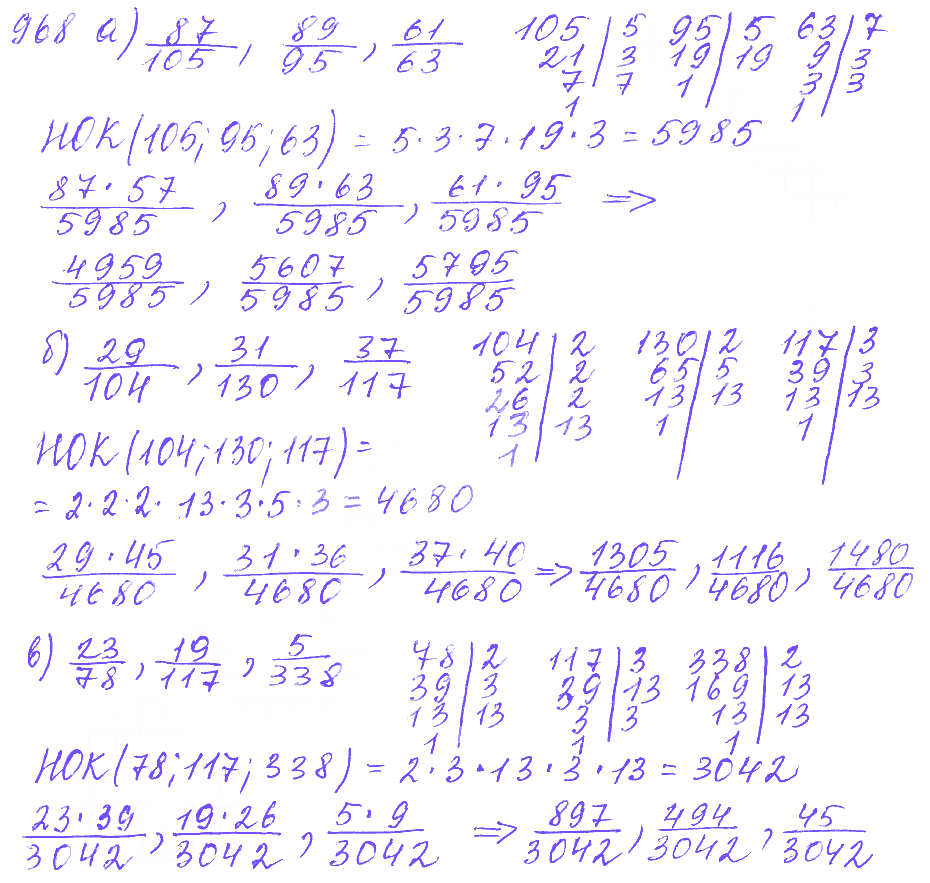 968 а) 87/105, 89/95, 61/63 105 | 5 95 | 5 63 | 7
21 | 3 19 | 19 9 | 3
7 | 7 1 | 3 | 3
1 1
НОК(105; 95; 63) = 5·3·7·19·3 = 5985
87·57/5985, 89·63/5985, 61·95/5985 =>
4959/5985, 5607/5985, 5795/5985
б) 29/104, 31/130, 37/117 104 | 2 130 | 2 117 | 3
52 | 2 65 | 5 39 | 3
26 | 2 13 | 13 13 | 13
13 | 13 1 | 1 |
1
НОК(104; 130; 117) =
= 2·2·2·13·3·5·3 = 4680
29·45/4680, 31·36/4680, 37·40/4680 => 1305/4680, 1116/4680, 1480/4680
в) 23/78, 19/117, 5/338 78 | 2 117 | 3 338 | 2
39 | 3 39 | 13 169 | 13
13 | 13 3 | 3 13 | 13
1 1 1
НОК(78; 117; 338) = 2·3·13·3·13 = 3042
23·39/3042, 19·26/3042, 5·9/3042 => 897/3042, 494/3042, 45/3042